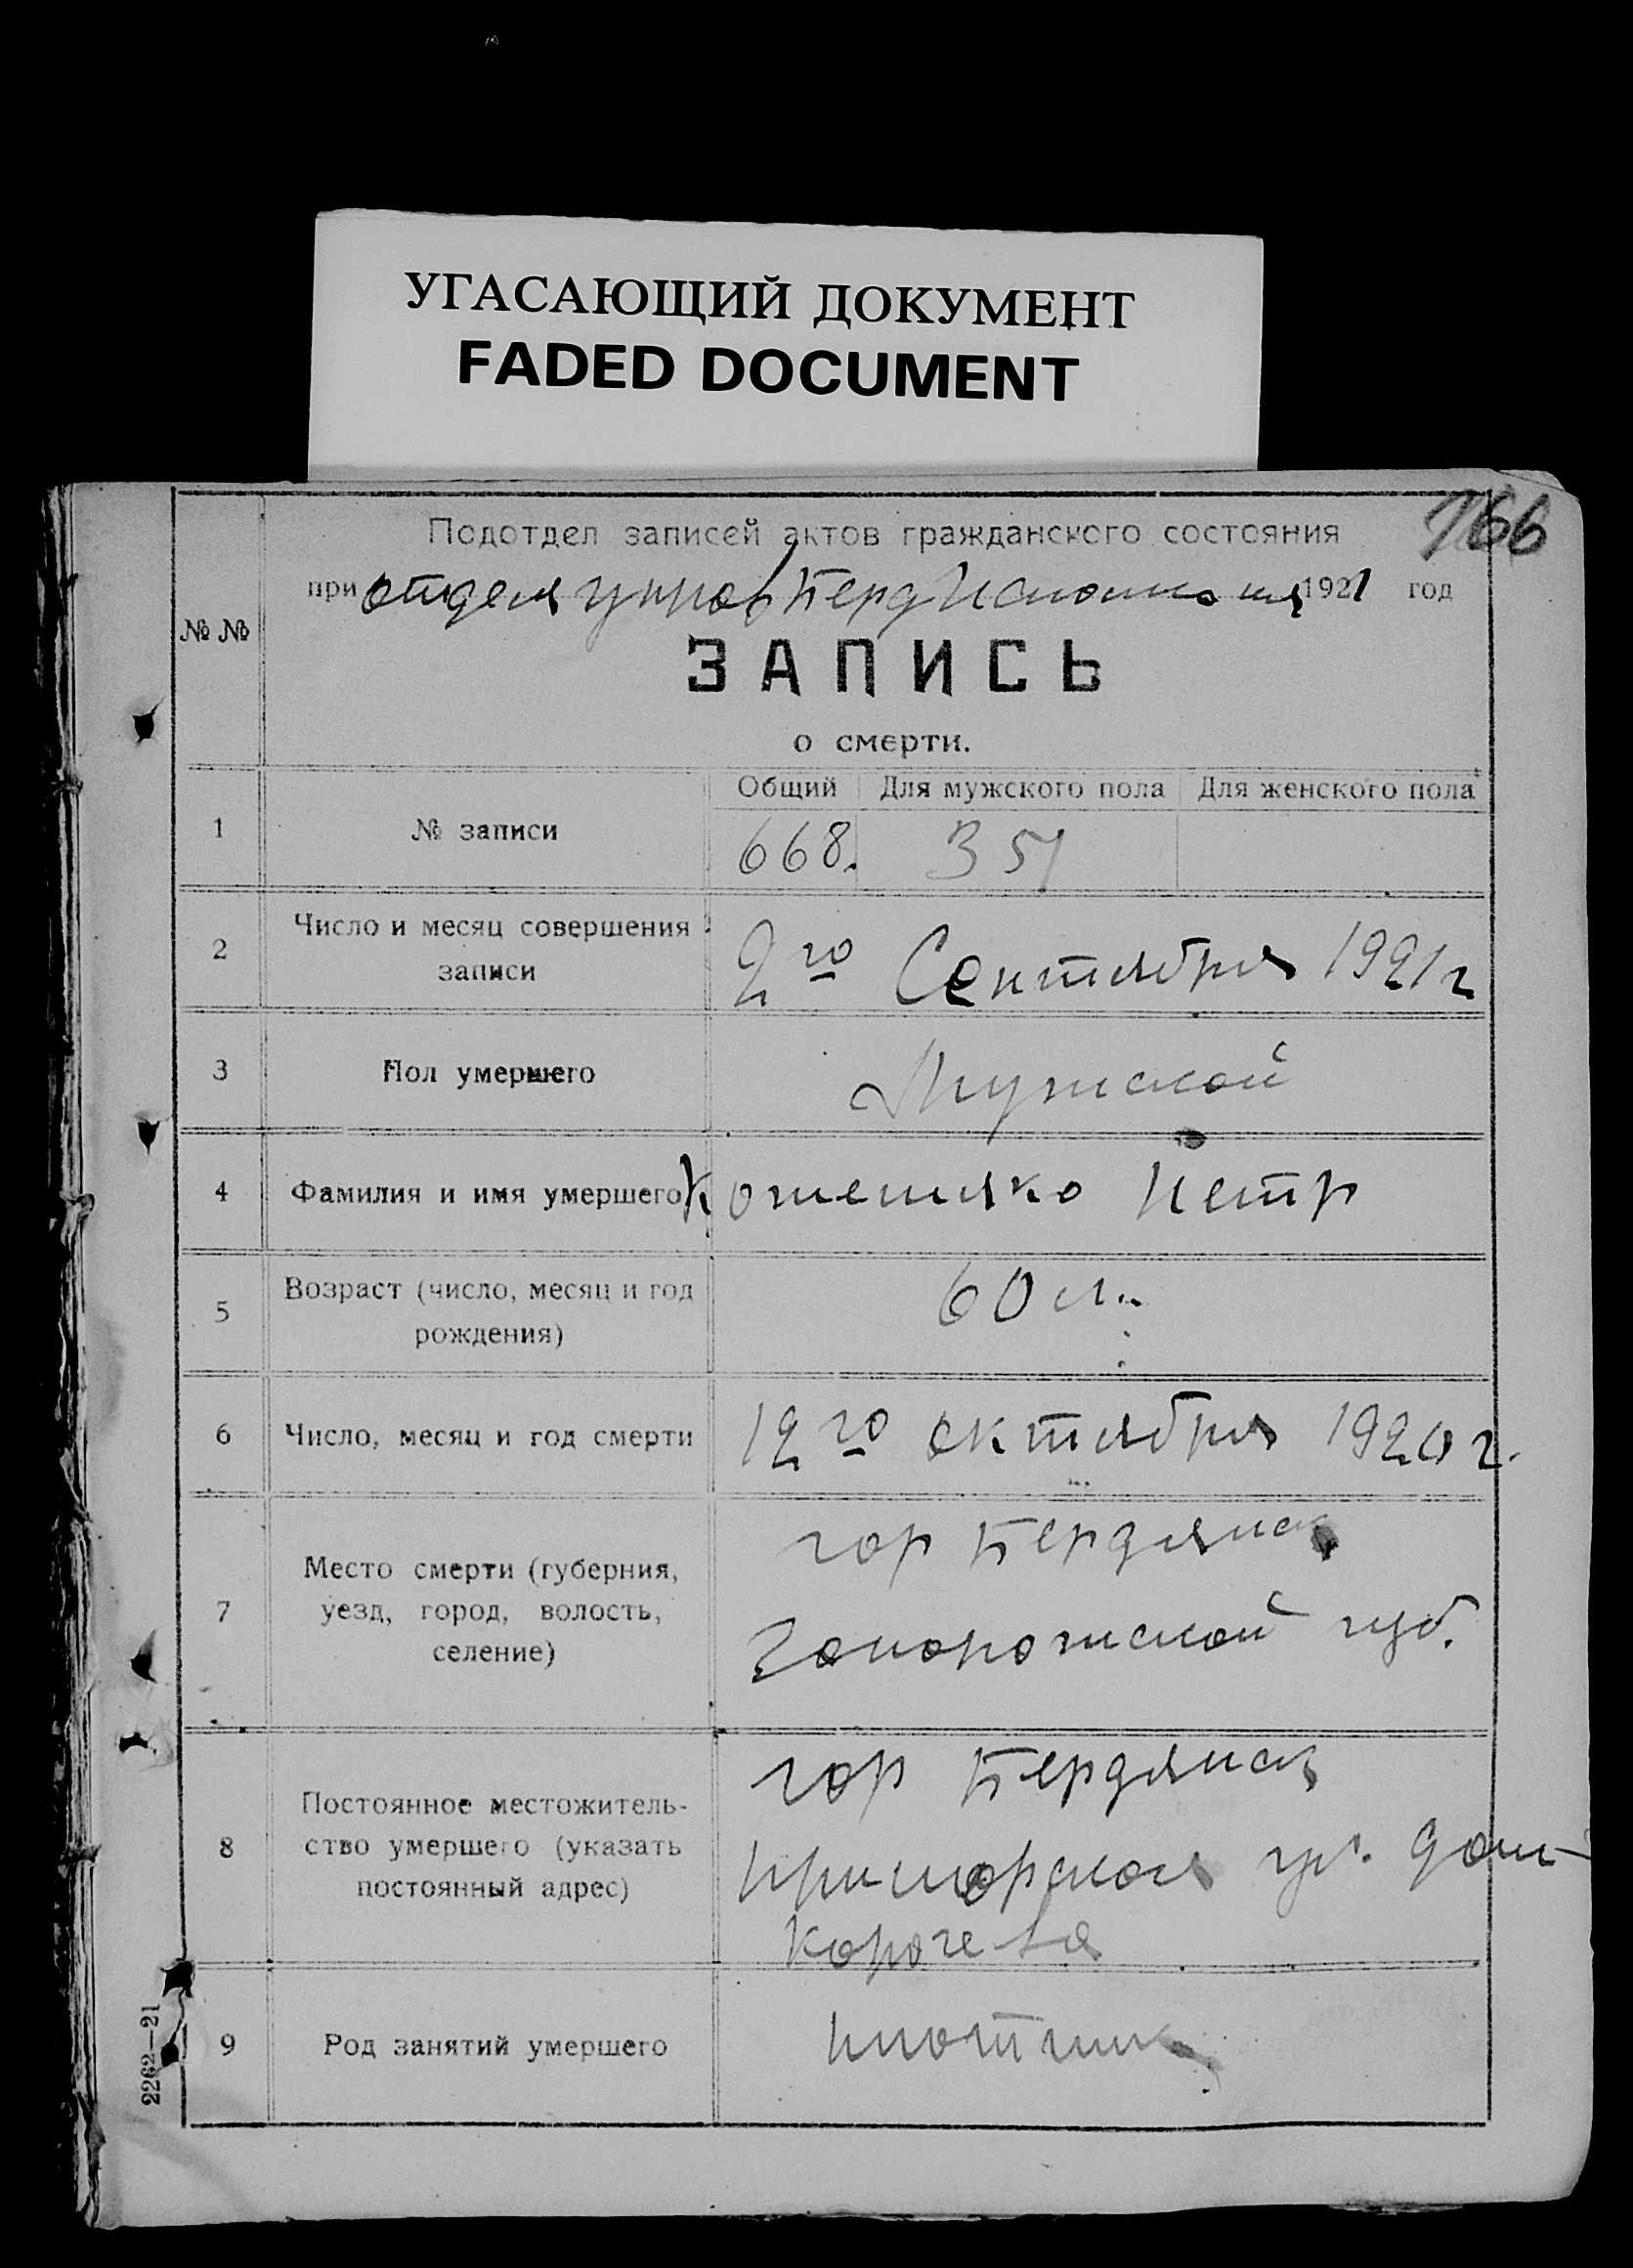 УГАСАЮЩИЙ ДОКУМЕНТ
FADED DOCUMENT
166
Подотдел записей актов гражданского состояния
при отделе управ Берд 1921 год
№ №
ЗАПИСЬ
о смерти.
Общий Для мужского пола Для женского пола
1 № записи 668. 351
2 Число и месяц совершения
записи
2го Сентября 1921 г
3 Пол умершего Мужской
4 Фамилия и имя умершего Петр
5 Возраст (число, месяц и год
рождения)
60 л.
6 Число, месяц и год смерти 12го октября 1920 г.
7 Место смерти (губерния,
уезд, город, волость,
селение)
гор Бердянск
Запорожской губ.
8 Постоянное местожитель-
ство умершего (указать
постоянный адрес)
гор Бердянск
Приморская ул. дом
9 Род занятий умершего плотник
2262—21